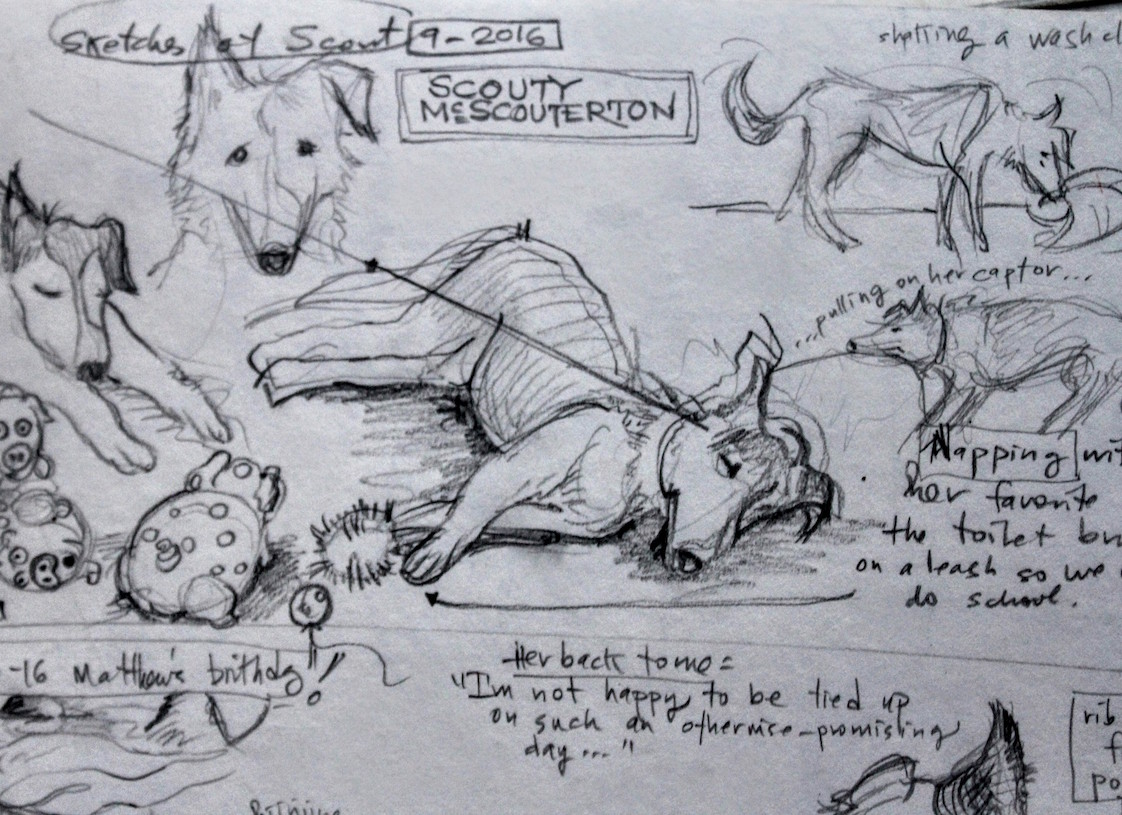 Sketches of Scout 9-2016
SCOUTY
McSCOUTERTON
a wash
...pulling on her captor...
Napping
her favorite
the toilet
on a leash so we
do school.
-16 Matthew's brithday!!
Her back to me:
"I'm not happy to be tied up
on such an otherwise-promising
day..."
rib
f
po